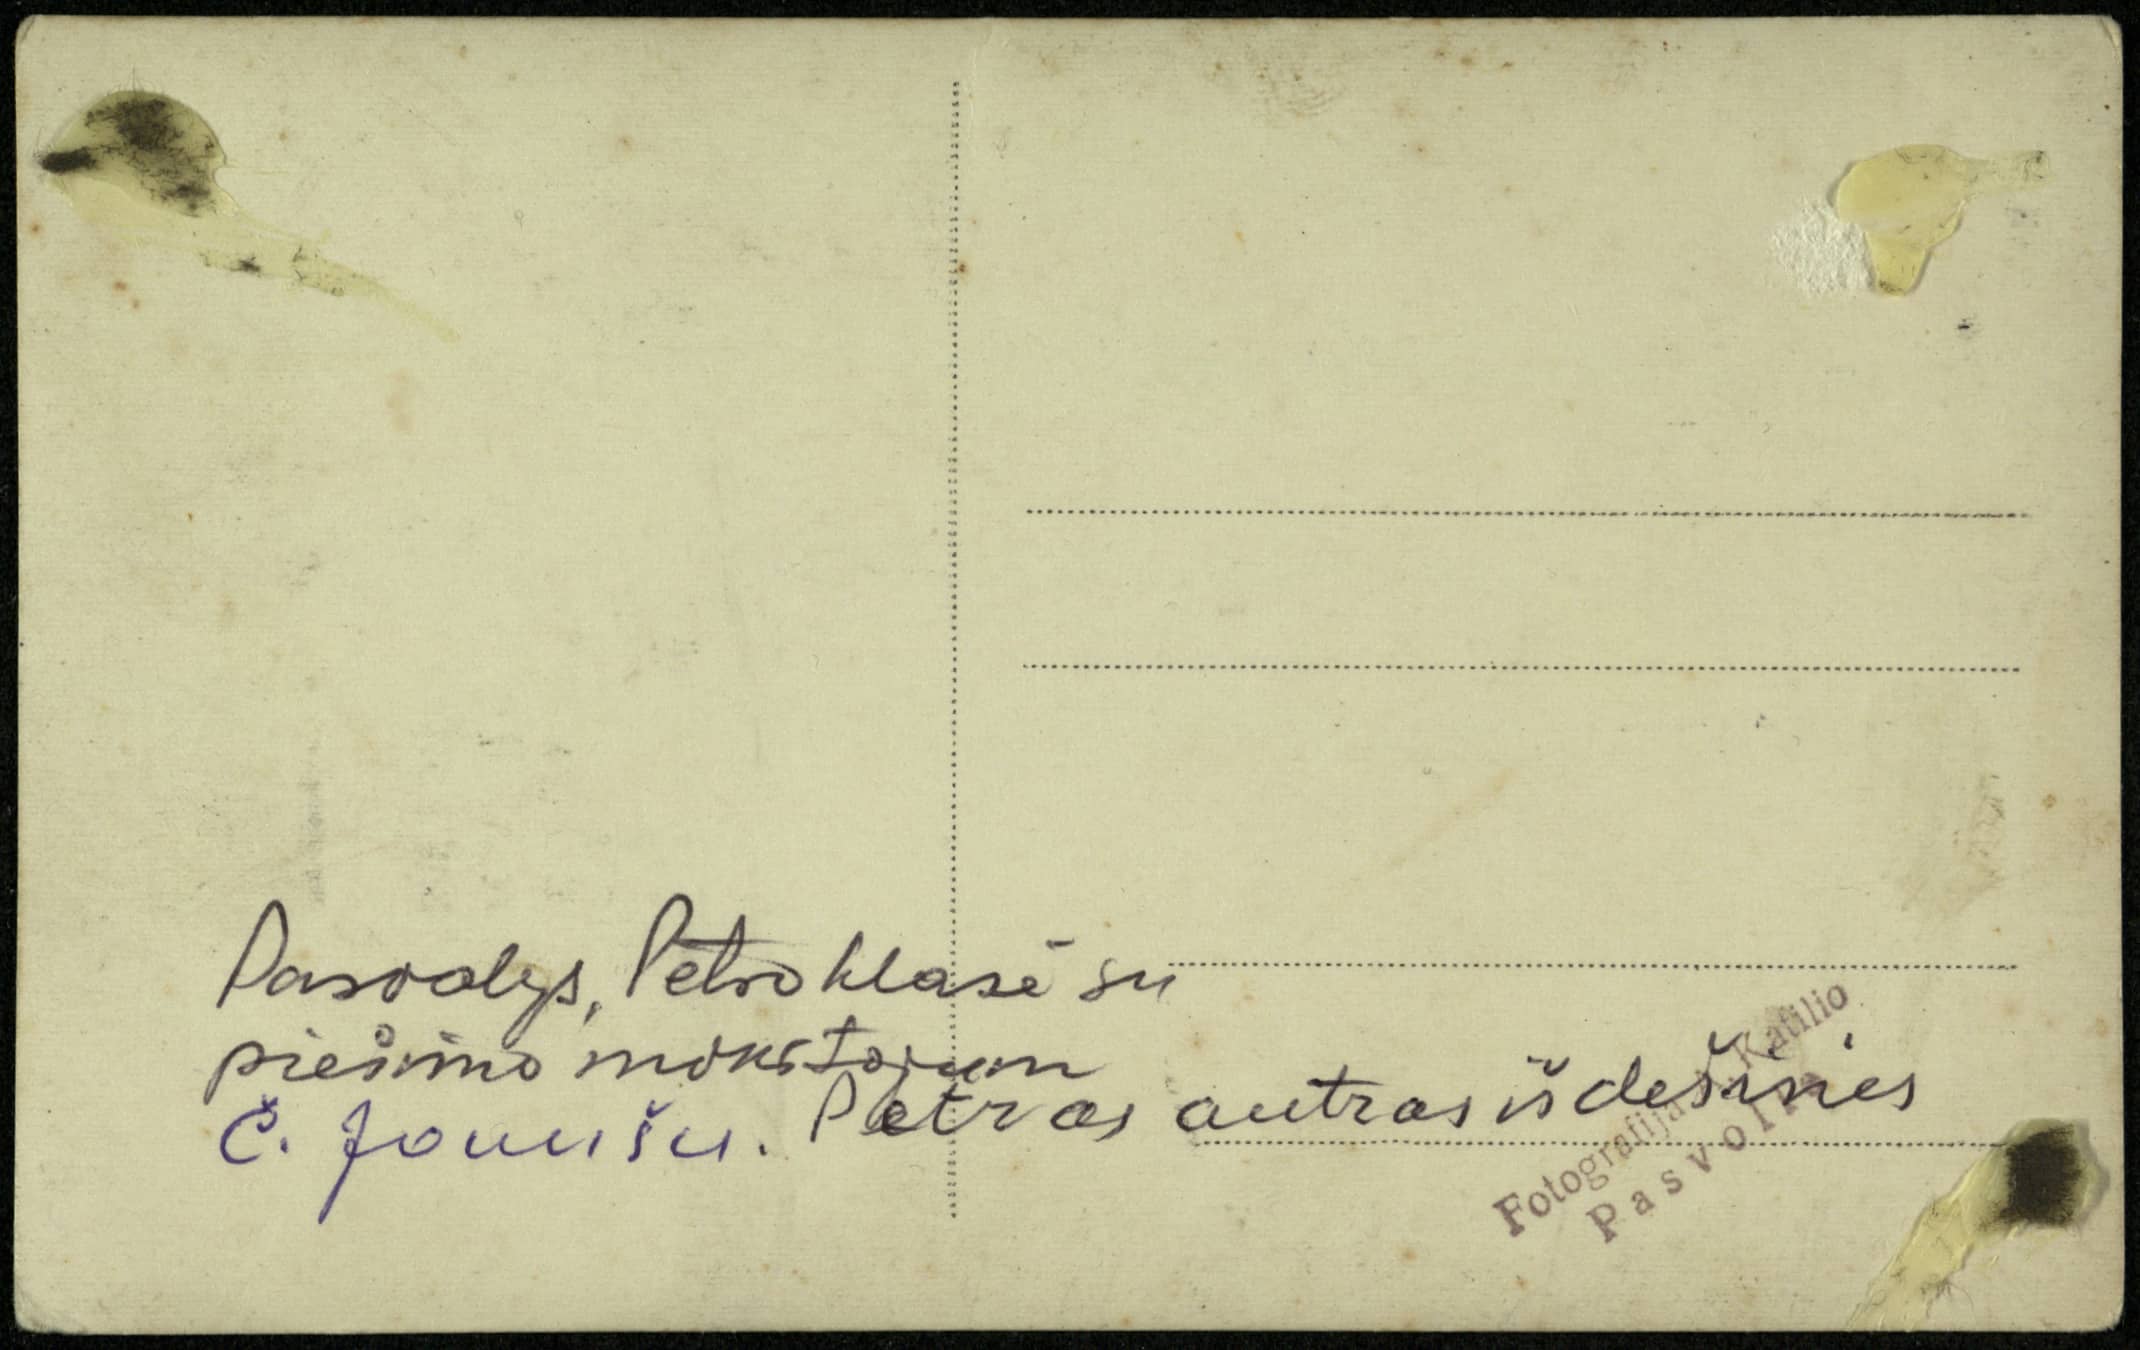 Pasvalys, Petro klasė su
piešimo mokytojum
Č. Janušu. Petras antras iš dešinės
Fotografija Katilio
Pasvoly